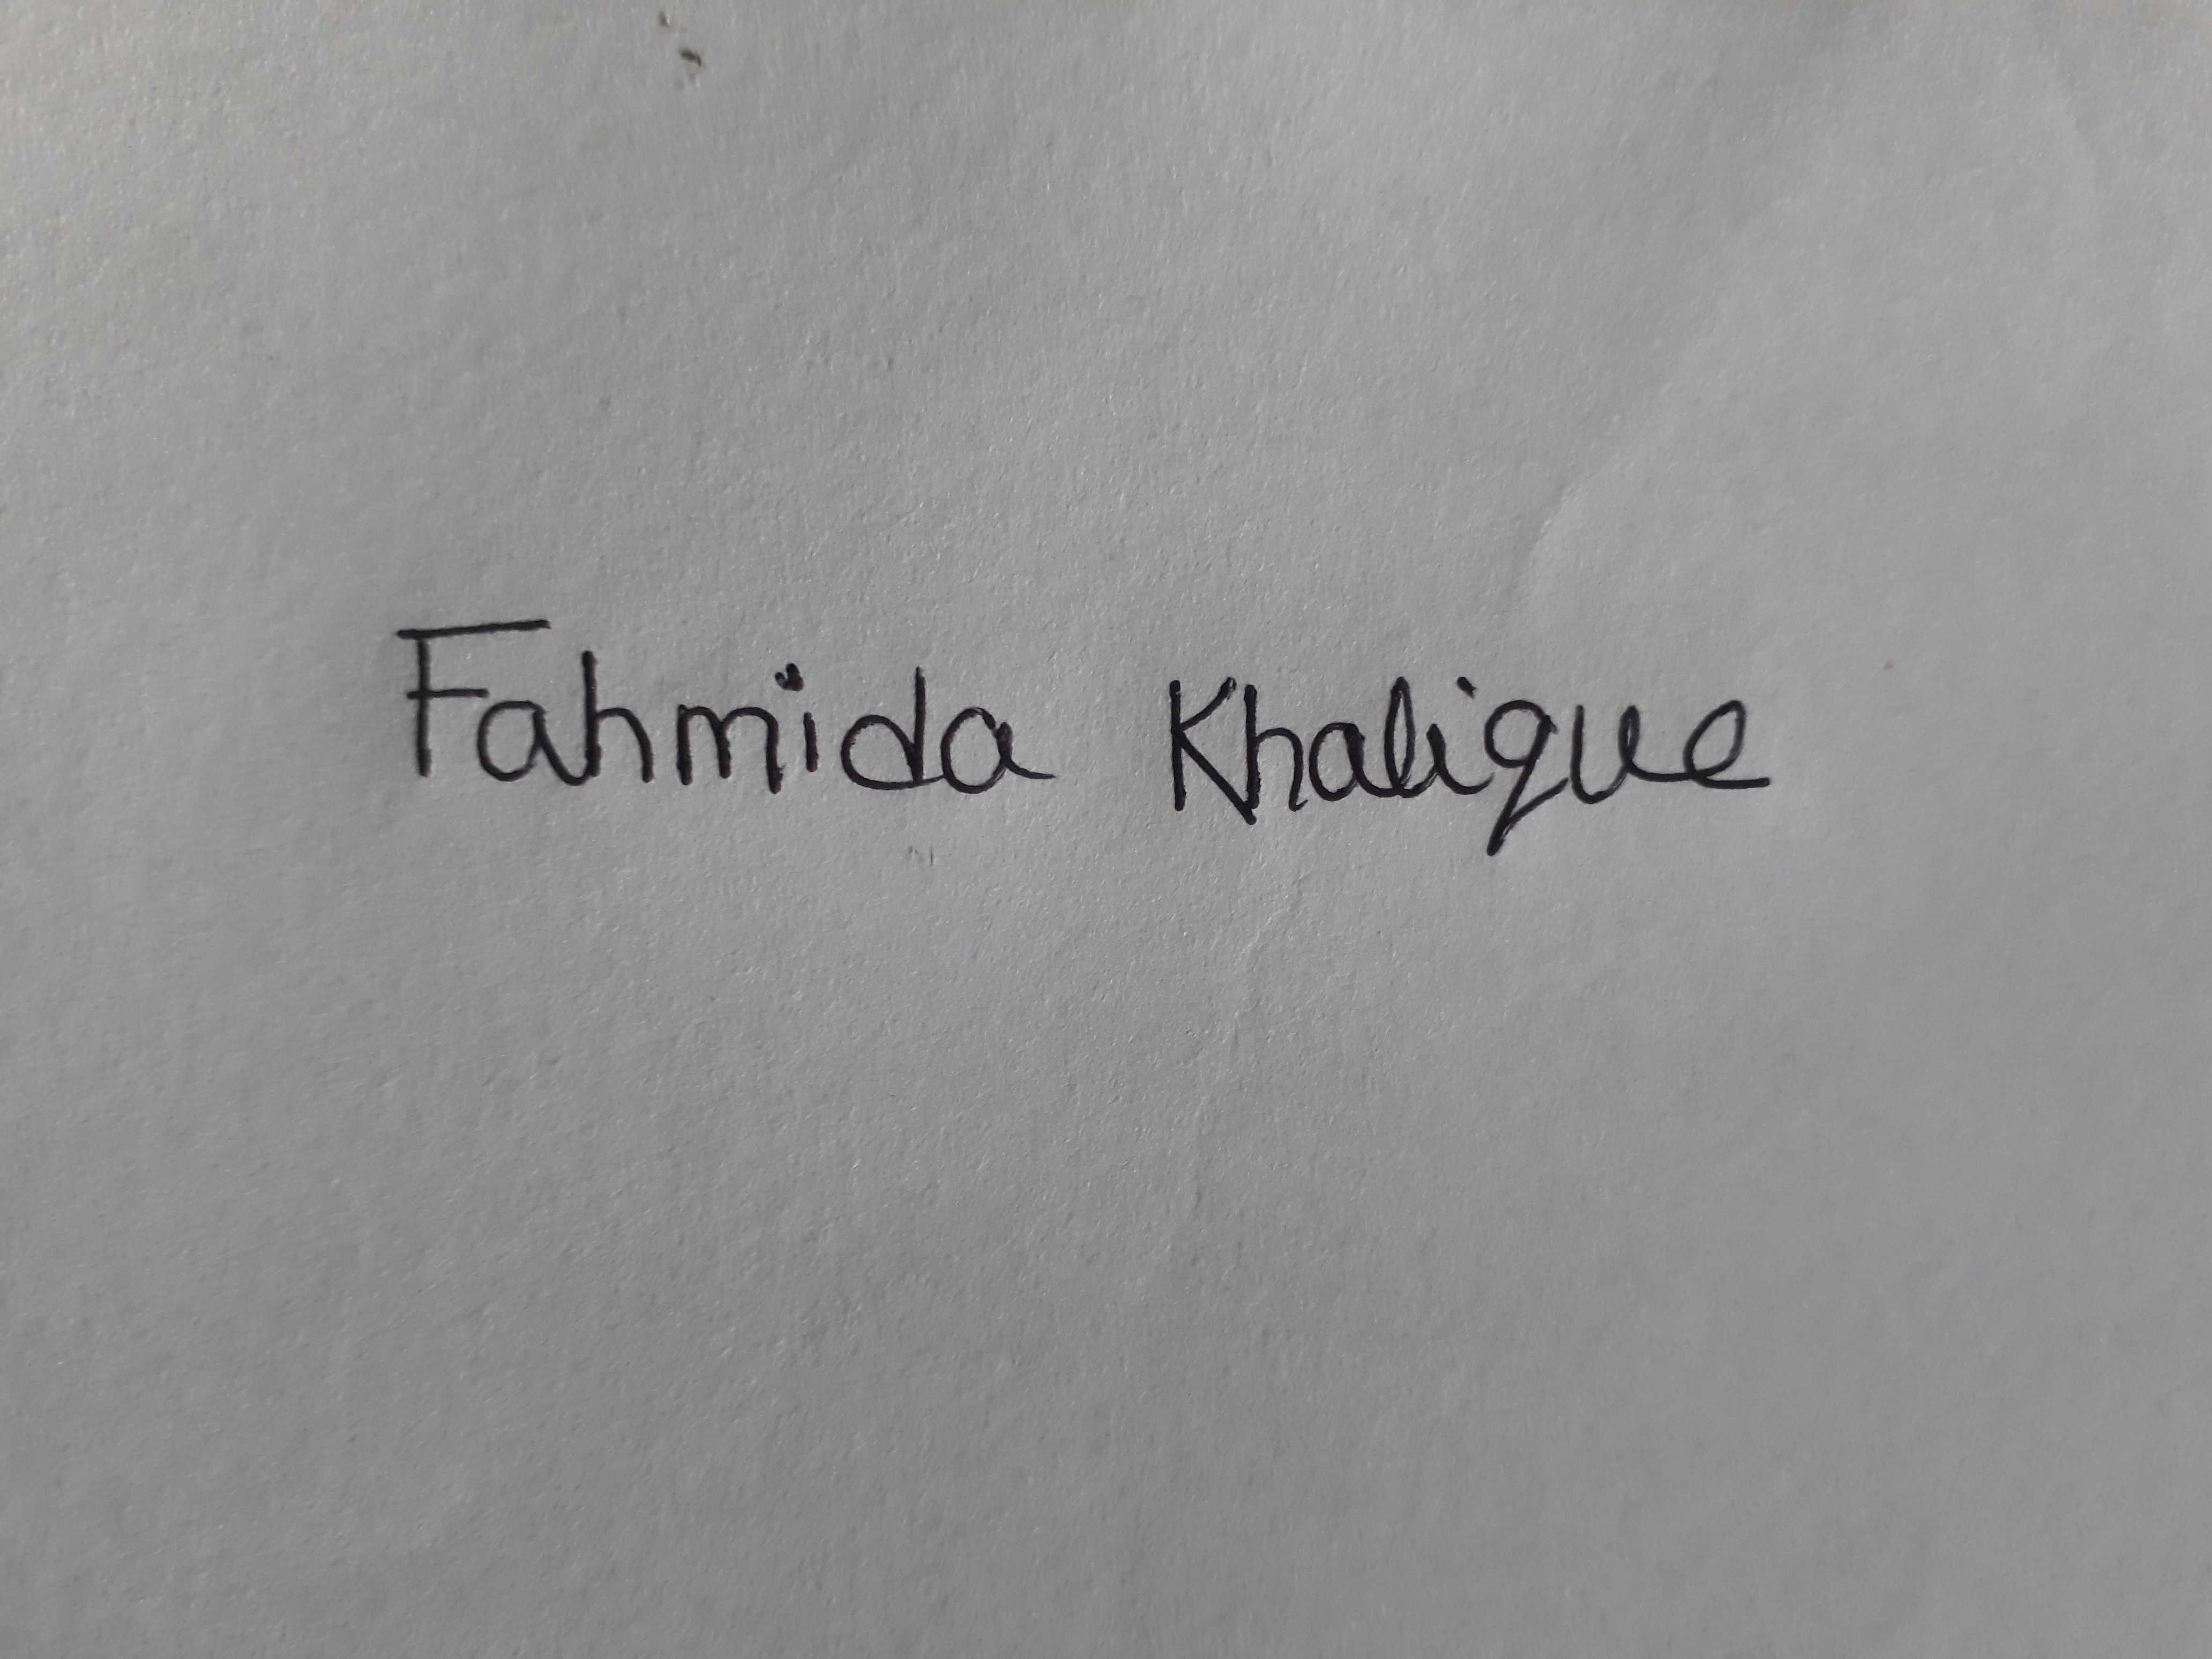 Fahmida Khalique